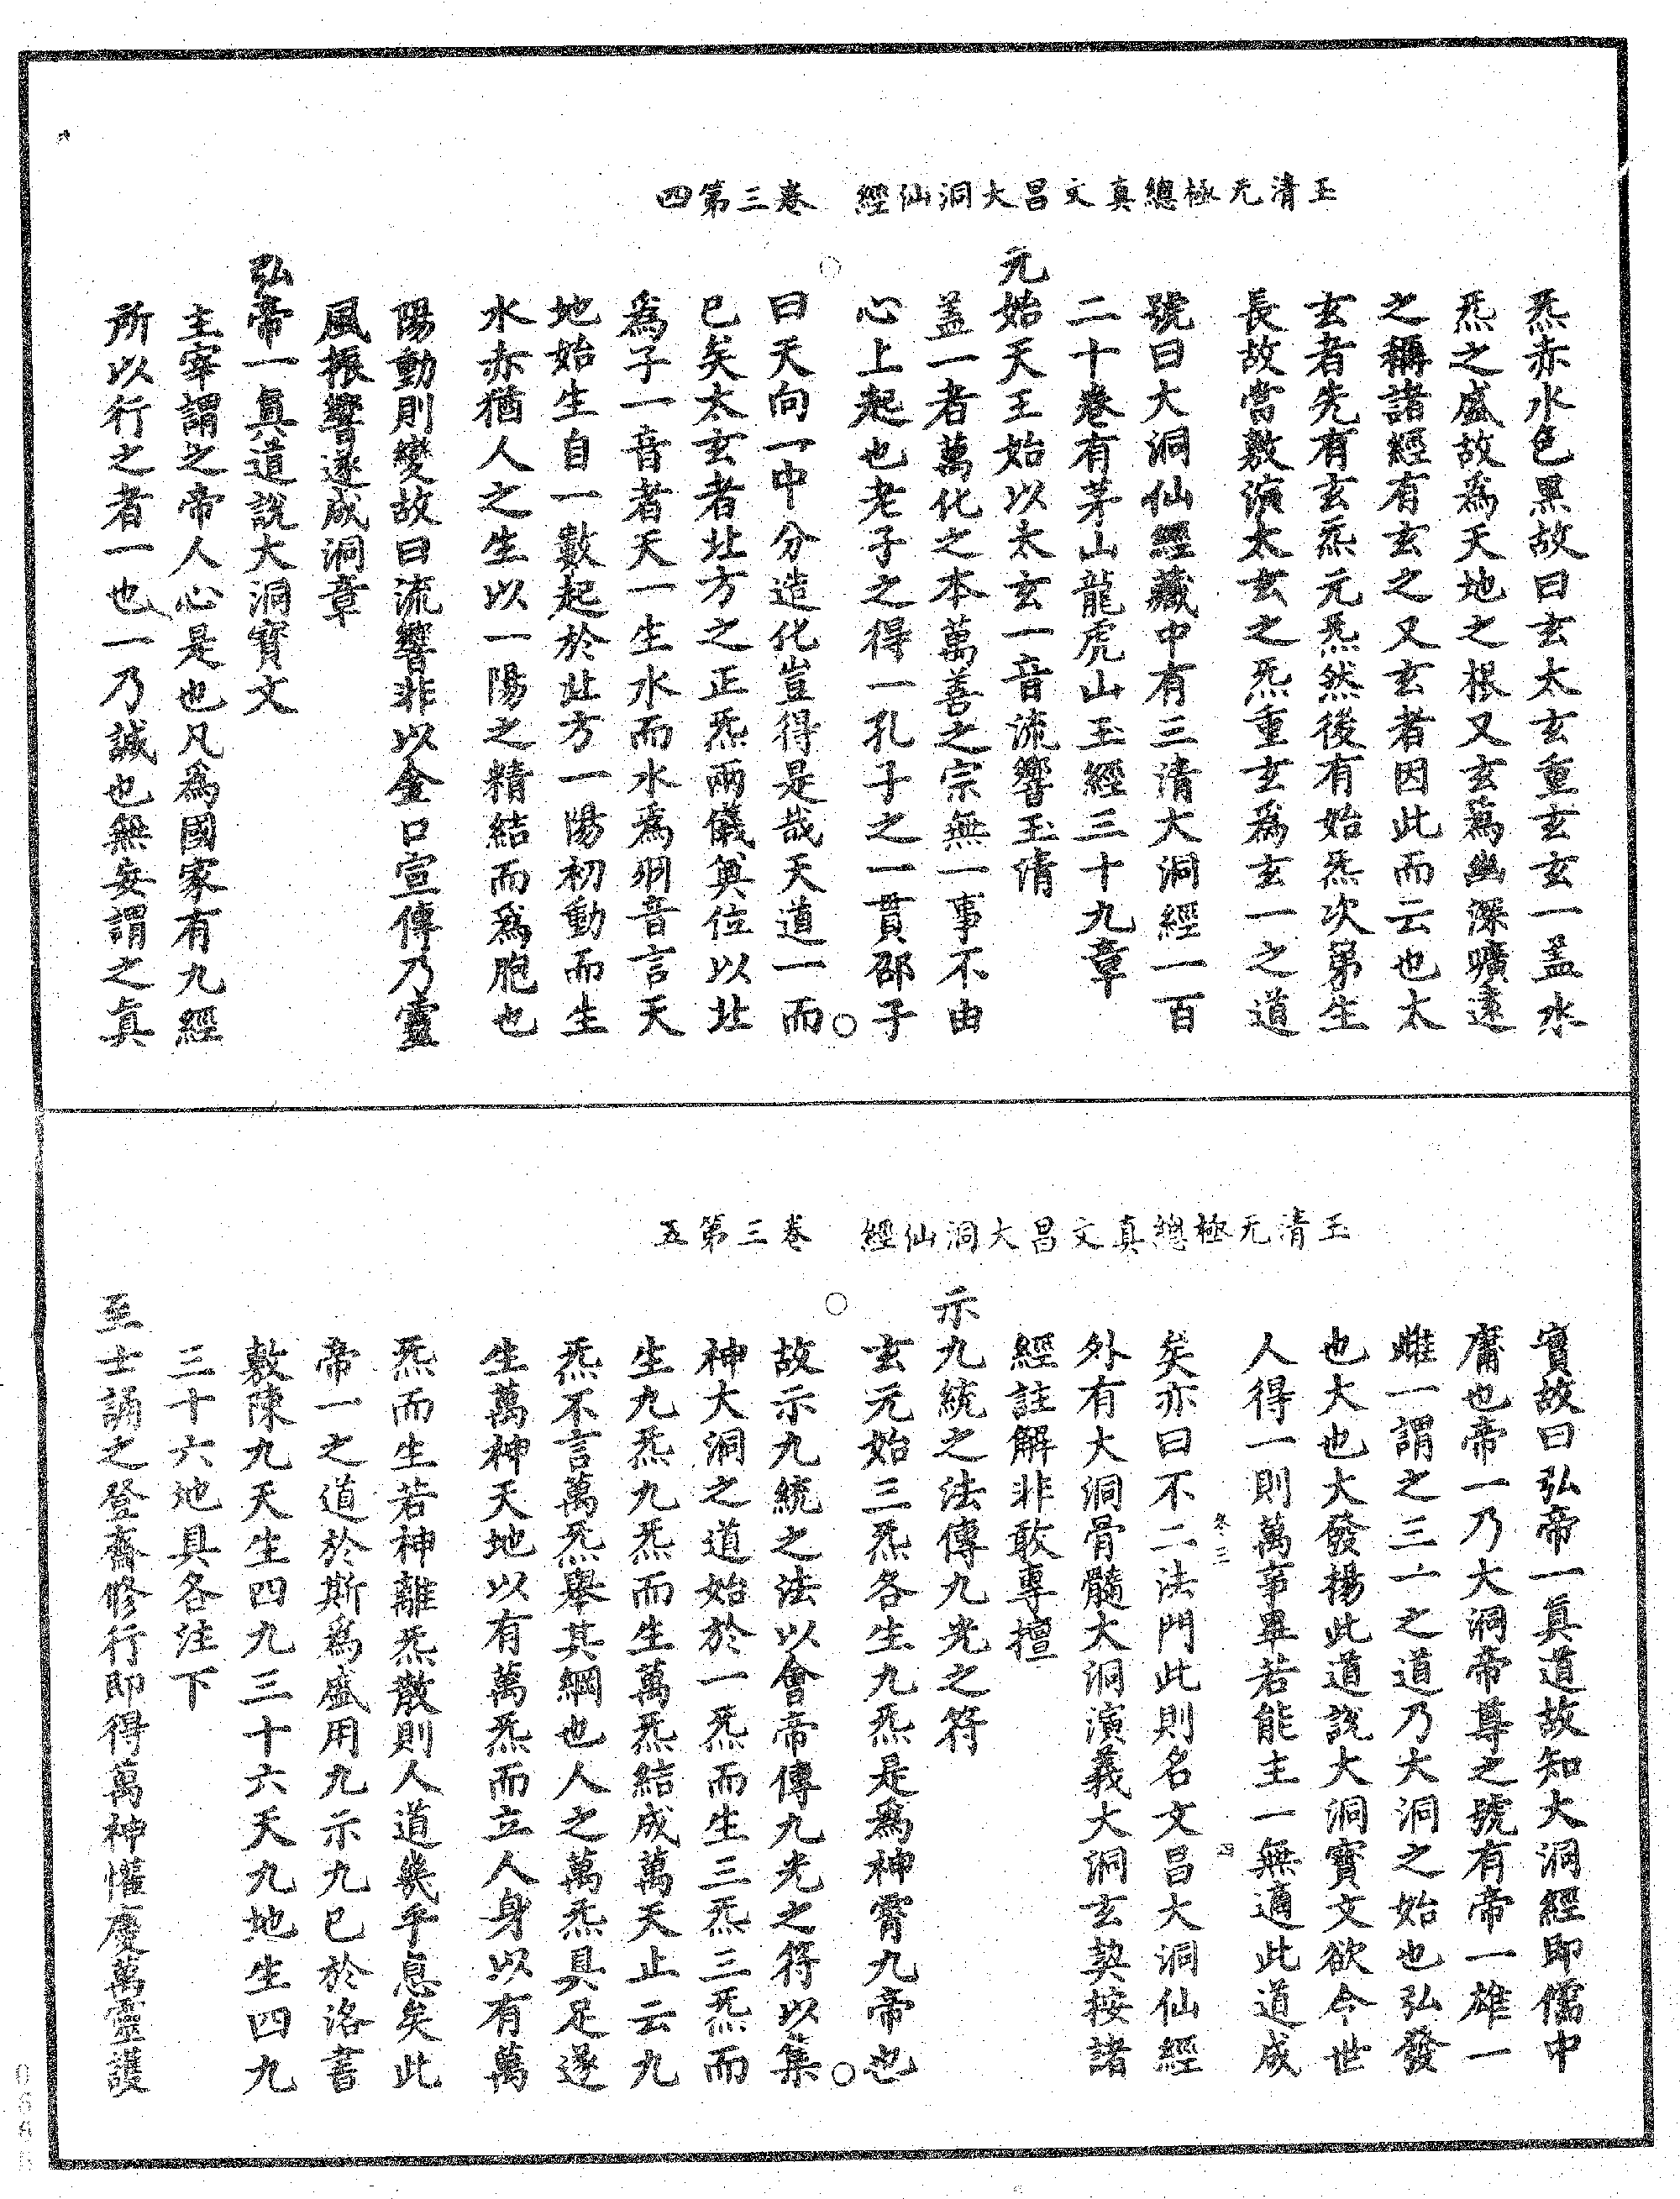 玉清无極總真文昌大洞仙經　卷三第四
炁赤水色黑故曰玄太玄重玄玄一蓋水
炁之盛故爲天地之根又玄爲幽深曠遠
之稱諸經有玄之又玄者因此而云也太
玄者先有玄炁元炁然後有始炁次第生
長故當敷演太玄之炁重玄爲玄一之道
號曰大洞仙經藏中有三清大洞經一百
二十卷有茅山龍虎山玉經三十九章
元始天王始以太玄一音流響玉清
蓋一者萬化之本萬善之宗無一事不由
心上起也老子之得一孔子之一貫邵子
曰天向一中分造化豈得是哉天道一而
已矣太玄者北方之正炁兩儀奠位以北
爲子一音者天一生水而水爲羽音言天
地始生自一數起於北方一陽初動而生
水亦猶人之生以一陽之精結而爲胞也
陽動則變故曰流響非以金口宣傳乃靈
風振響遂成洞章
弘帝一真道說大洞寶文
主宰謂之帝人心是也凡爲國家有九經
所以行之者一也一乃誠也無妄謂之真
玉清无極總真文昌大洞仙經　卷三第五
實故曰弘帝一真道故知大洞經即儒中
庸也帝一乃大洞帝尊之號有帝一雄一
雌一謂之三一之道乃大洞之始也弘發
也大也大發揚此道説大洞寶文欲令世
人得一則萬事畢若能主一無適此道成
卷三　四
矣亦曰不二法門此則名文昌大洞仙經
外有大洞骨髓大洞演義大洞玄契按諸
經註解非敢專擅
示九統之法傳九光之符
玄元始三炁各生九炁是爲神霄九帝也
故示九統之法以會帝傳九光之符以集
神大洞之道始於一炁而生三炁三炁而
生九炁九炁而生萬炁結成萬天止云九
炁不言萬炁舉其綱也人之萬炁具足遂
生萬神天地以有萬炁而立人身以有萬
炁而生若神離炁散則人道幾乎息矣此
帝一之道於斯爲盛用九示九已於洛書
敷陳九天生四九三十六天九地生四九
三十六地具各注下
至士誦之登齋修行即得萬神懽慶萬靈護